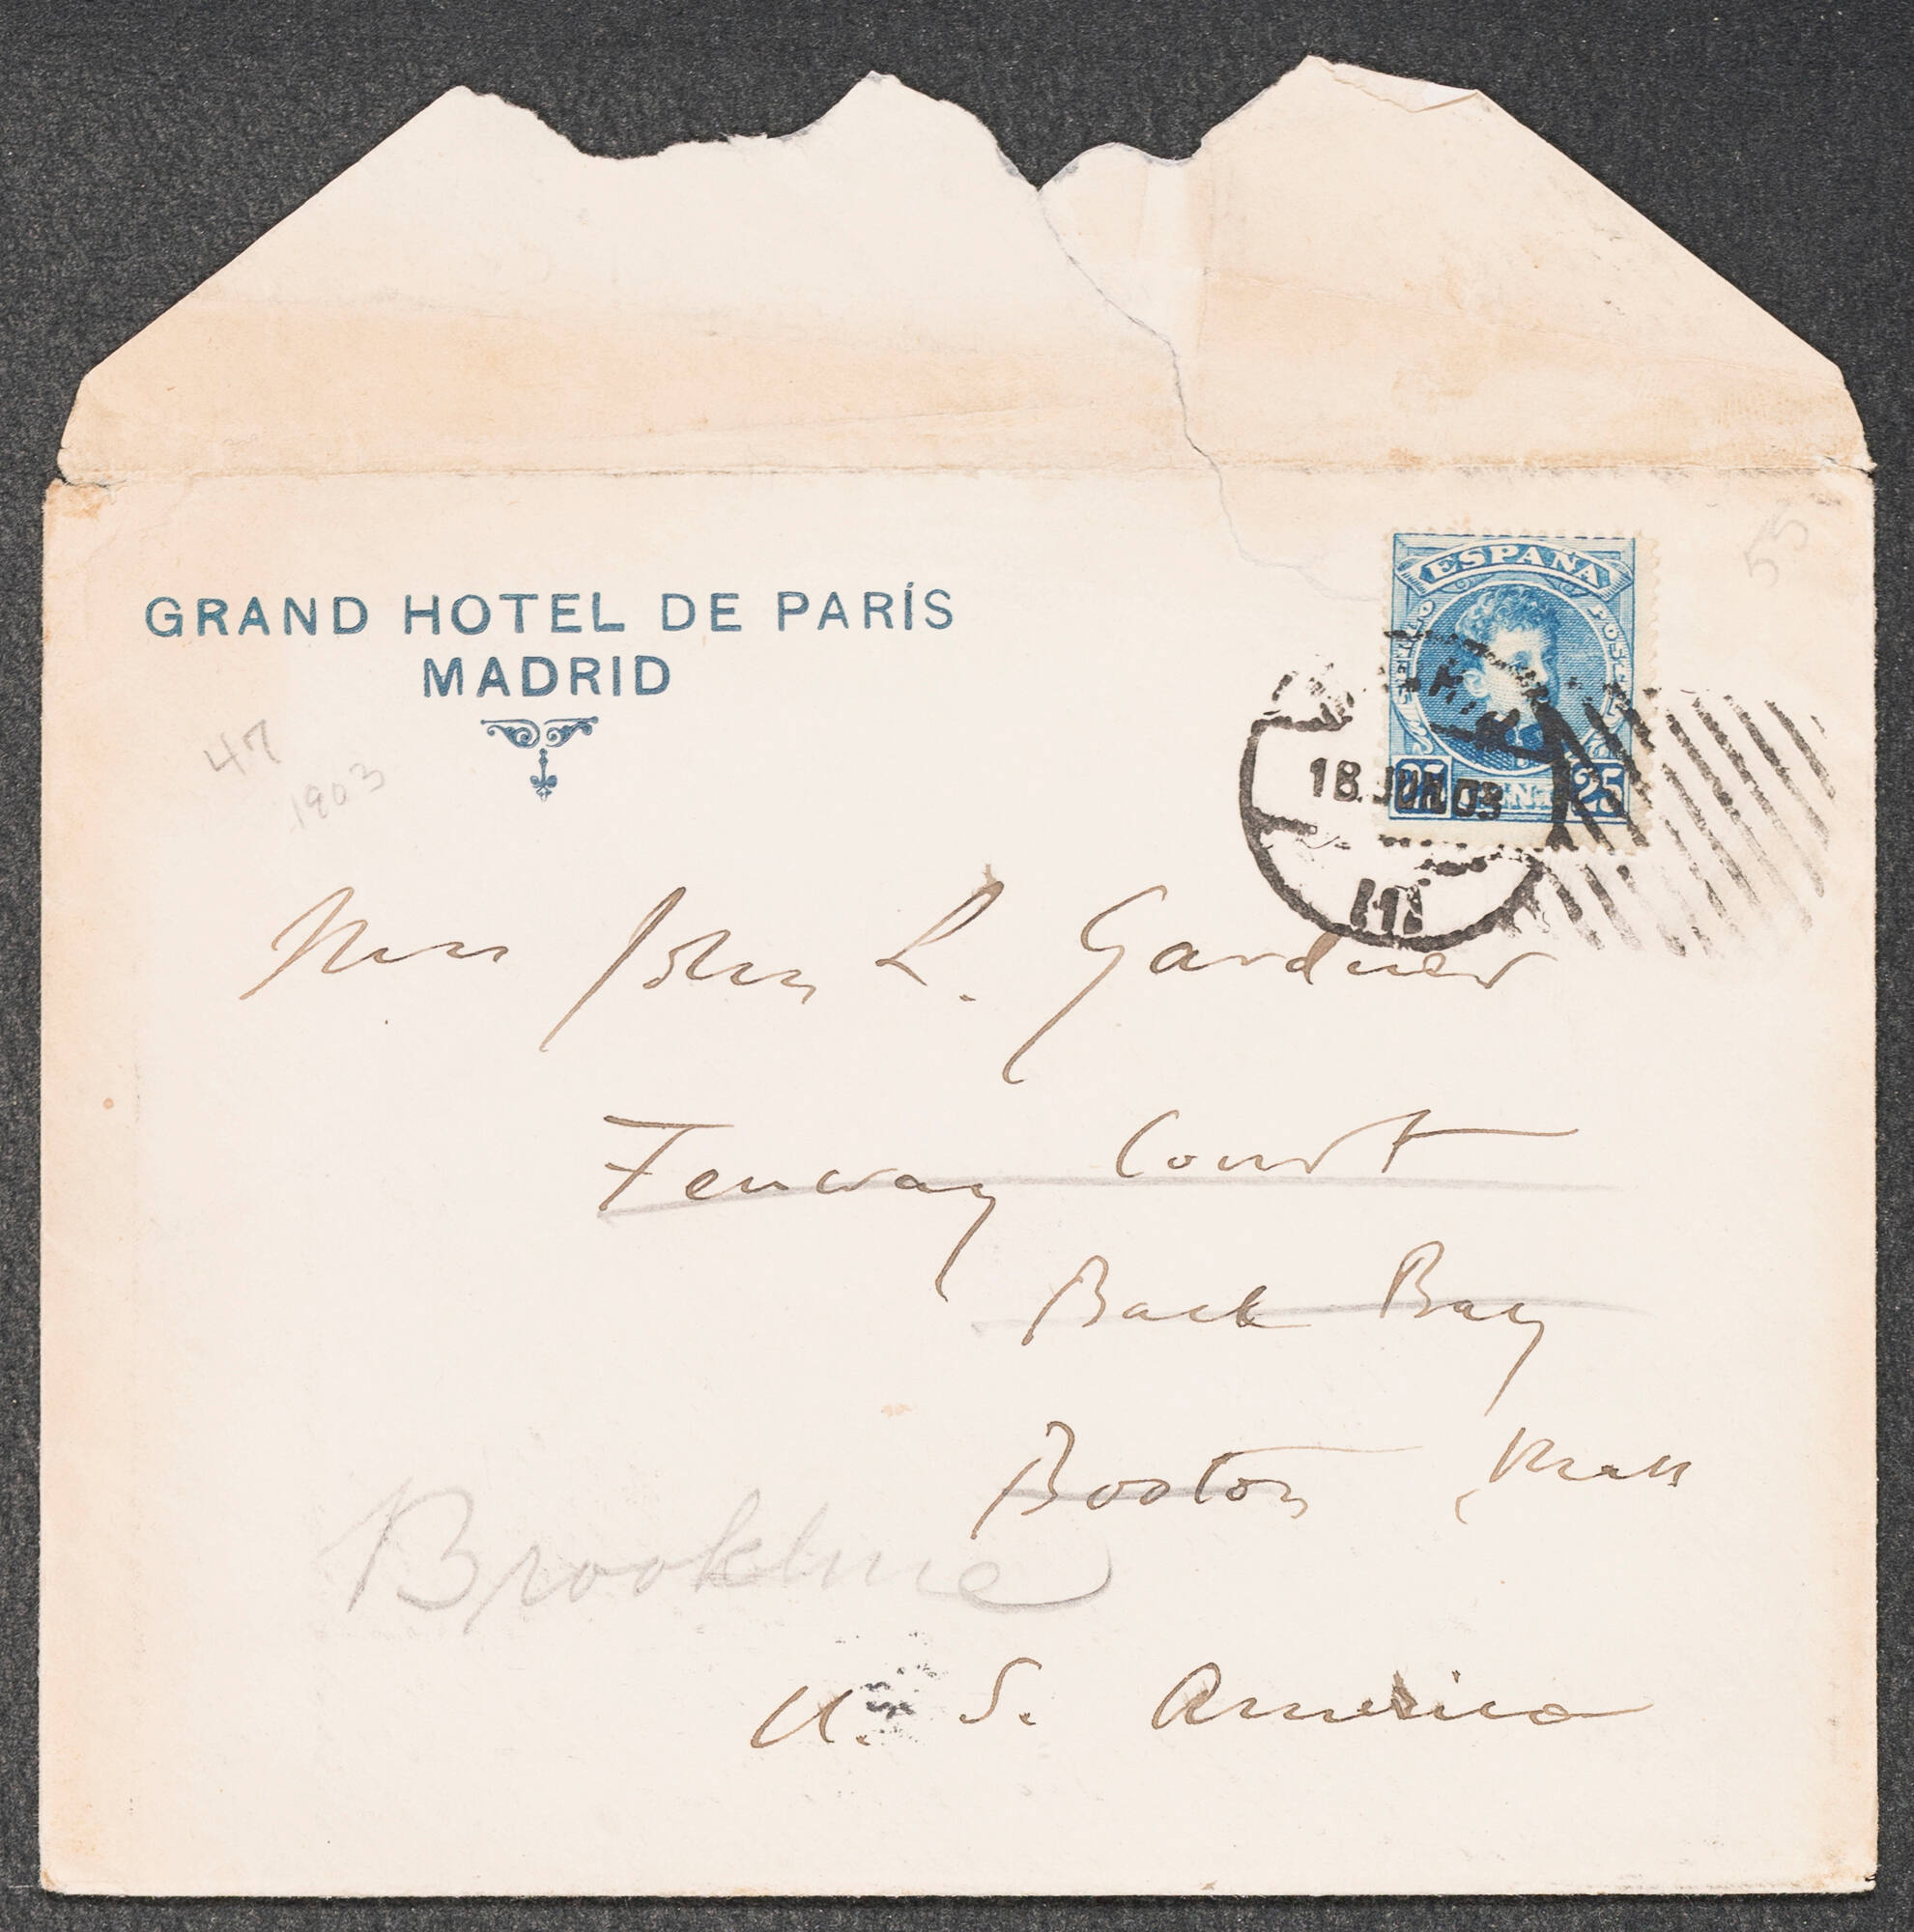 GRAND HOTEL DE PARÍS
MADRID
55
ESPAÑA
25 25
18.JUN.03
47
1903
Mrs John L. Gardner
Fenway Court
Back Bay
Boston, Mass
Brookline
U. S. America